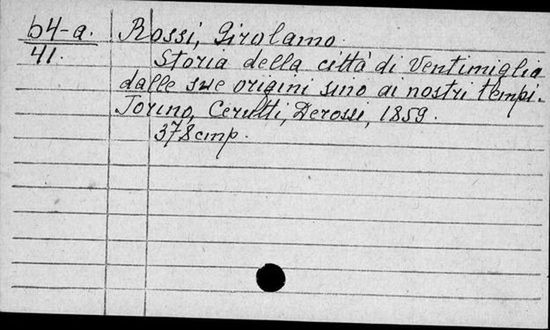 b4-a. Rossi, Girolamo.
41. Storia della città di Ventimiglia
dalle sue origini sino ai nostri tempi.
Torino, Cerutti, Derossi, 1859.
378 cmp.